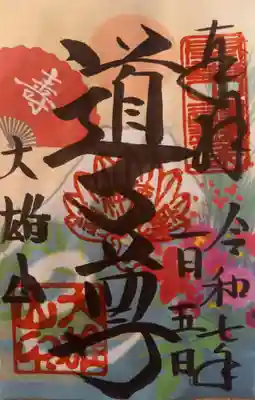 奉拝
令和七年
一月五日
道了尊
大雄山
寿